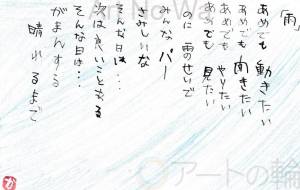 「雨」
あめでも 動きたい
あめでも 向きたい
あめでも やりたい
あめでも 見たい
のに 雨のせいで
みんな パー
さみしいな
そんな日は…
次は良いことある
そんな日は…
がまんする
晴れるまで
アートの輪